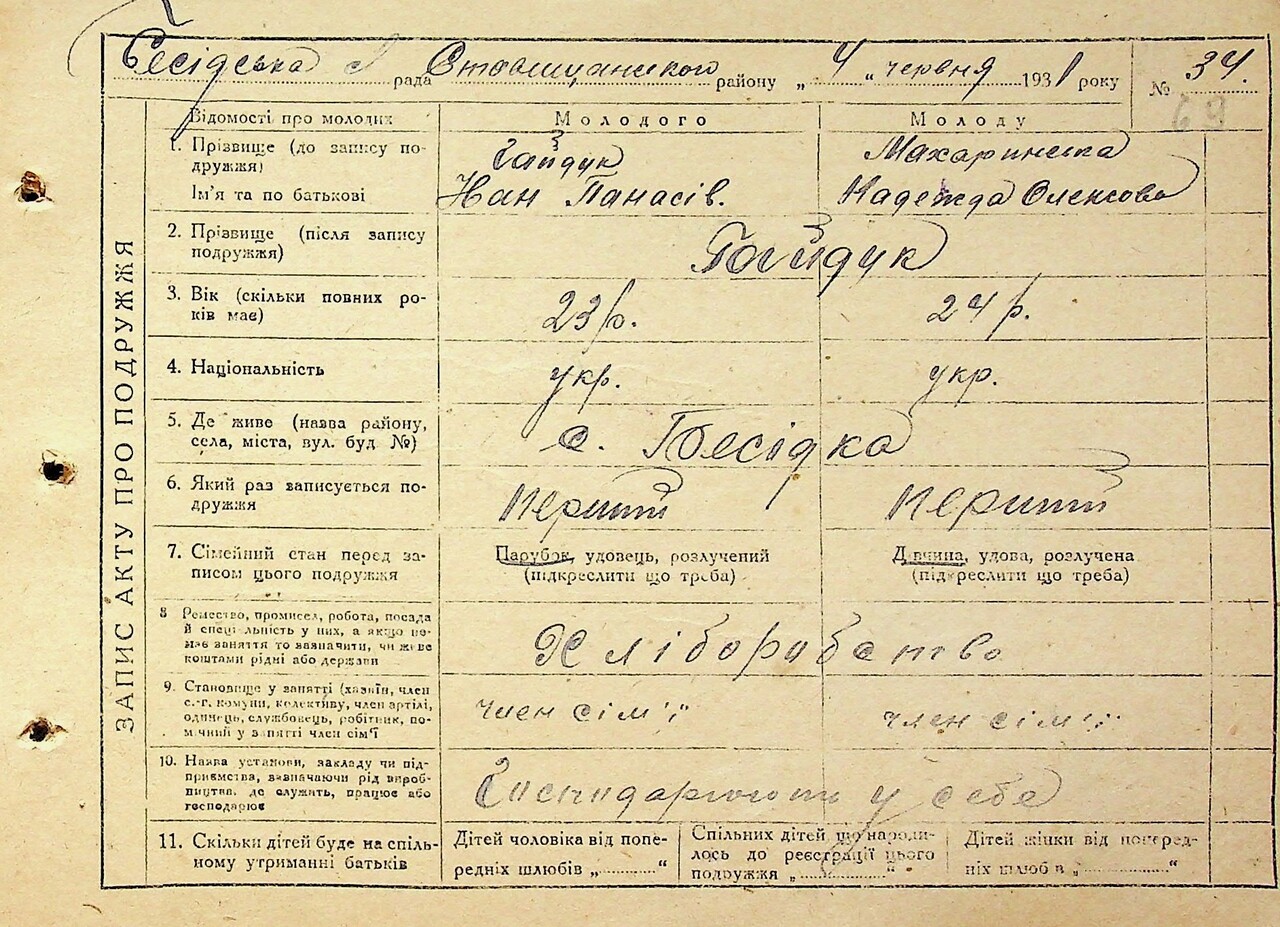 Бесідська с рада Ставищанського району „ 4 “ червня 1931 року № 34.
69
ЗАПИС АКТУ ПРО ПОДРУЖЖЯ
Відомості про молодих Молодого Молоду
1. Прізвище (до запису по-
дружжя) Гайдук Махаринська
Ім'я та по батькові Іван Панасів. Надежда Олексова
2. Прізвище (після запису
подружжя) Гайдук
3. Вік (скільки повних ро-
ків має) 23 р. 24 р.
4. Національність укр. укр.
5. Де живе (назва району,
села, міста, вул. буд №) с. Бесідка
6. Який раз записується по-
дружжя
7. Сімейний стан перед за-
писом цього подружжя
Парубок, удовець, розлучений
(підкреслити що треба)
Дівчина, удова, розлучена
(підкреслити що треба)
8 Ремество, промисел, робота, посада
й спеціяльність у них, а якщо не-
має заняття то зазначити, чи живе
коштами рідні або держави
Хліборобство
9. Становище у занятті (хазяїн, член
с.-г. комуни, колективу, член артілі,
одинець, службовець, робітник, по-
мічний у занятті член сім'ї
член сім'ї член сім'ї
10. Назва установи, закладу чи під-
приємства, зазначаючи рід вироб-
ництва, де служить, працює або
господарює
у себе
11. Скільки дітей буде на спіль-
ному утриманні батьків
Дітей чоловіка від попе-
редніх шлюбів „ “
Спільних дітей що народи-
лось до реєстрації цього
подружжя „ “
Дітей жінки від поперед-
ніх шлюбів „ “